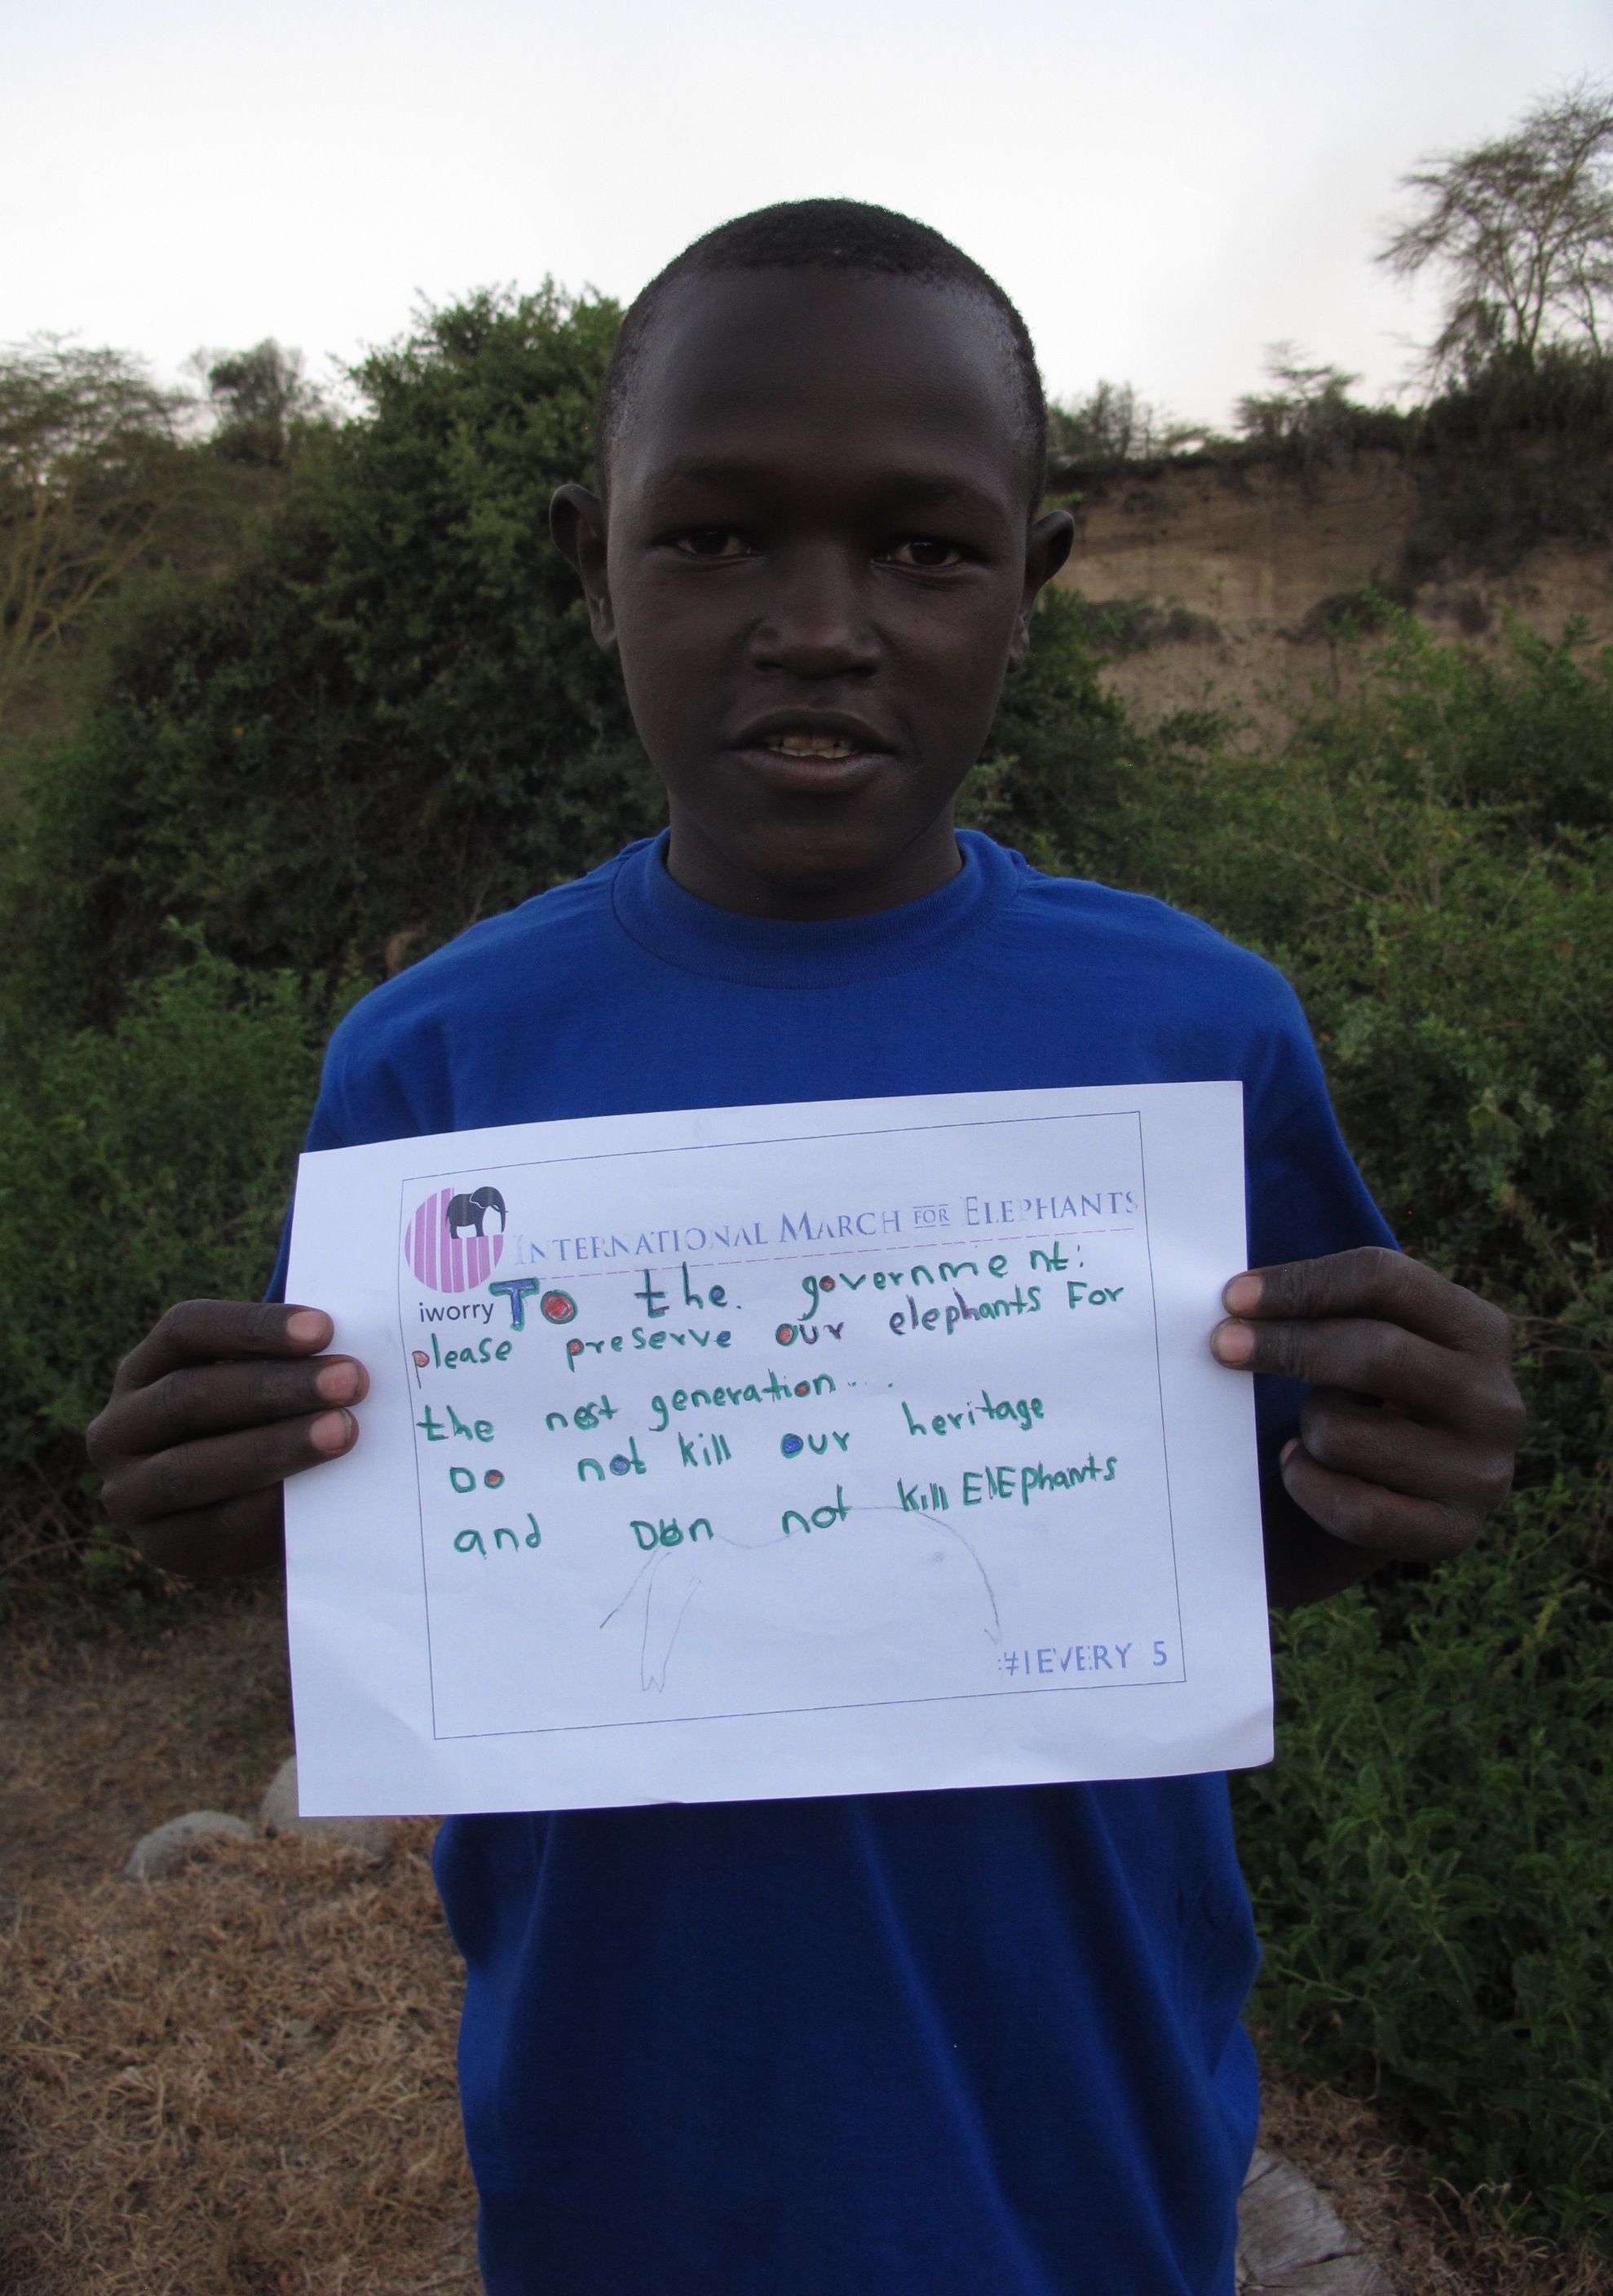 INTERNATIONAL MARCH FOR ELEPHANTS
iworry
To the. government:
please preserve our elephants For
the nest generation...
Do not kill our heritage
and not kill ElEphants
#1EVERY 5